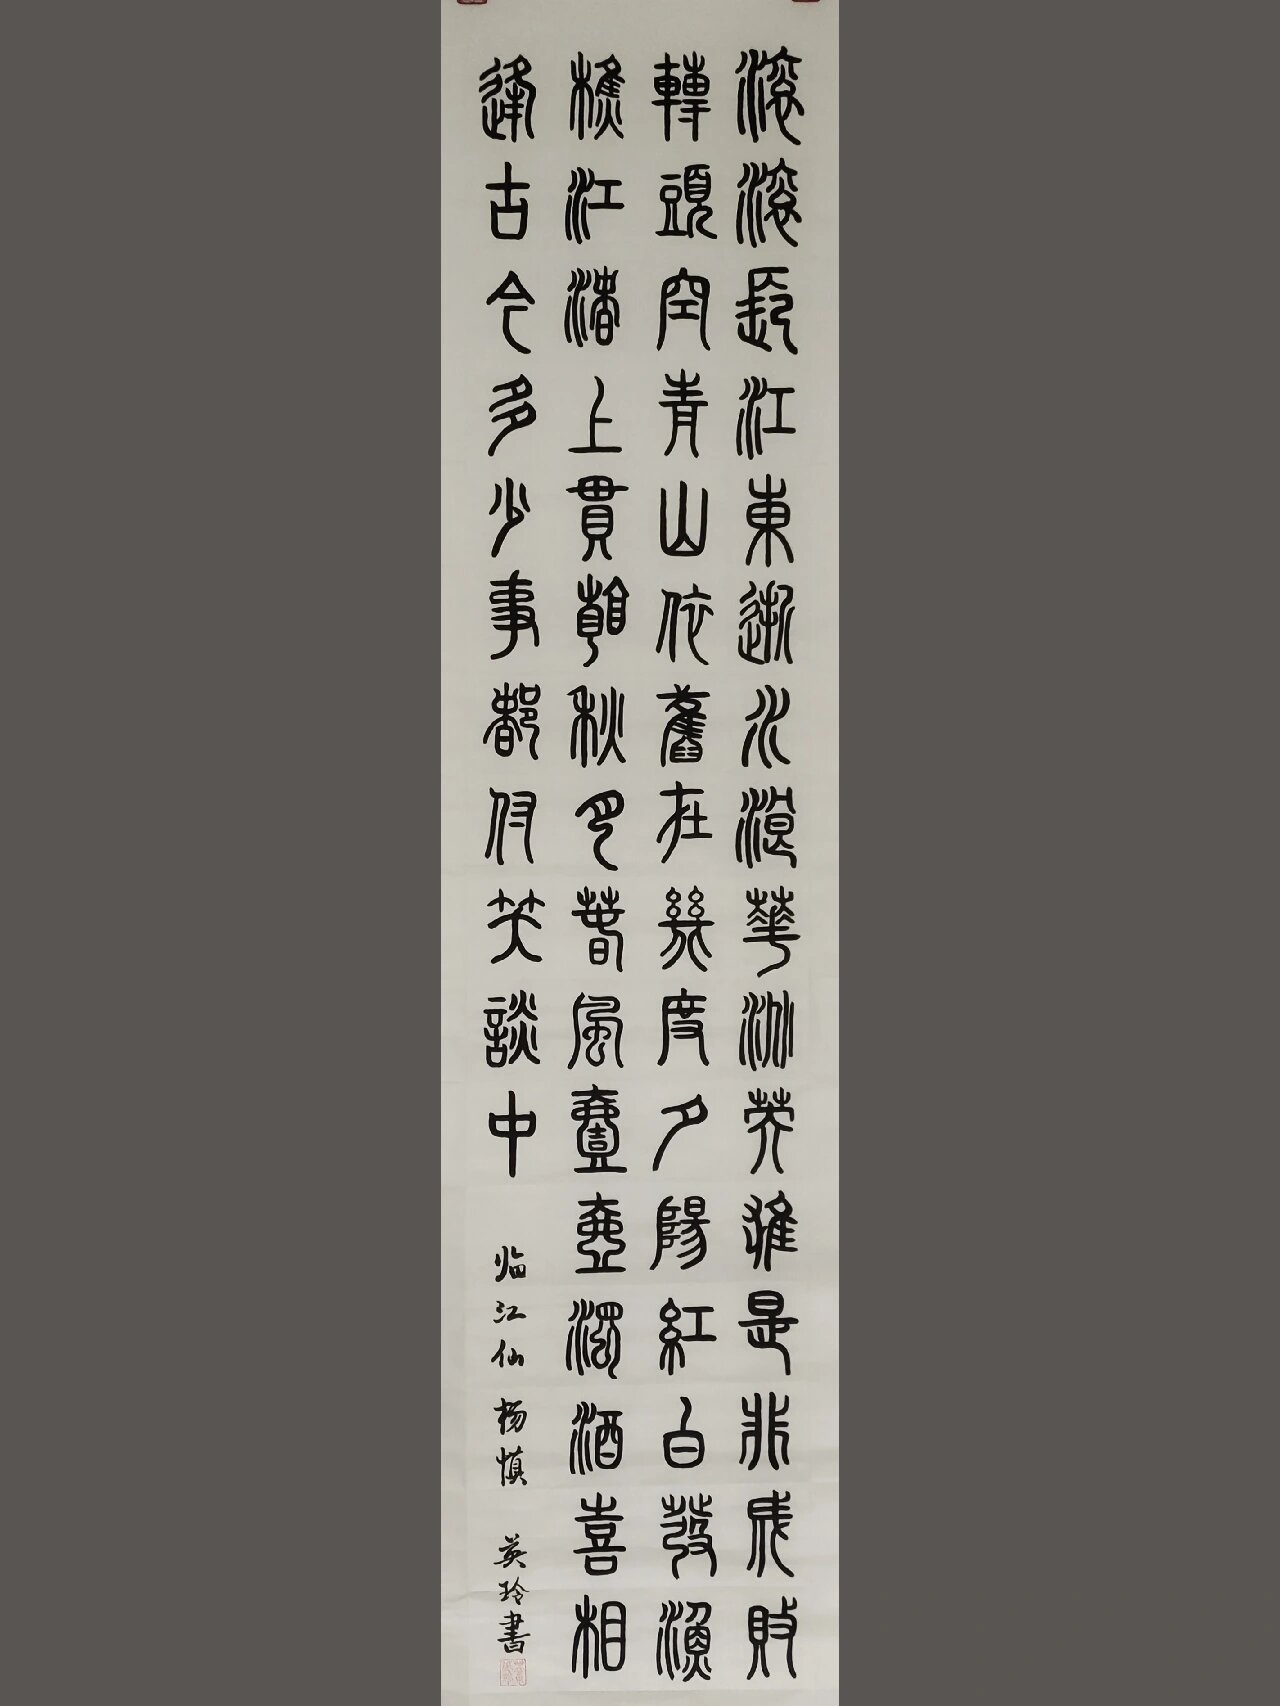 滚滚長江東逝水浪華英雄是非成敗
轉頭空青山依舊在幾度夕陽紅白發漁
樵江渚上貫看秋月春風壹壺濁酒喜相
逢古今多少事都付笑談中
临江仙 杨慎 英玲書